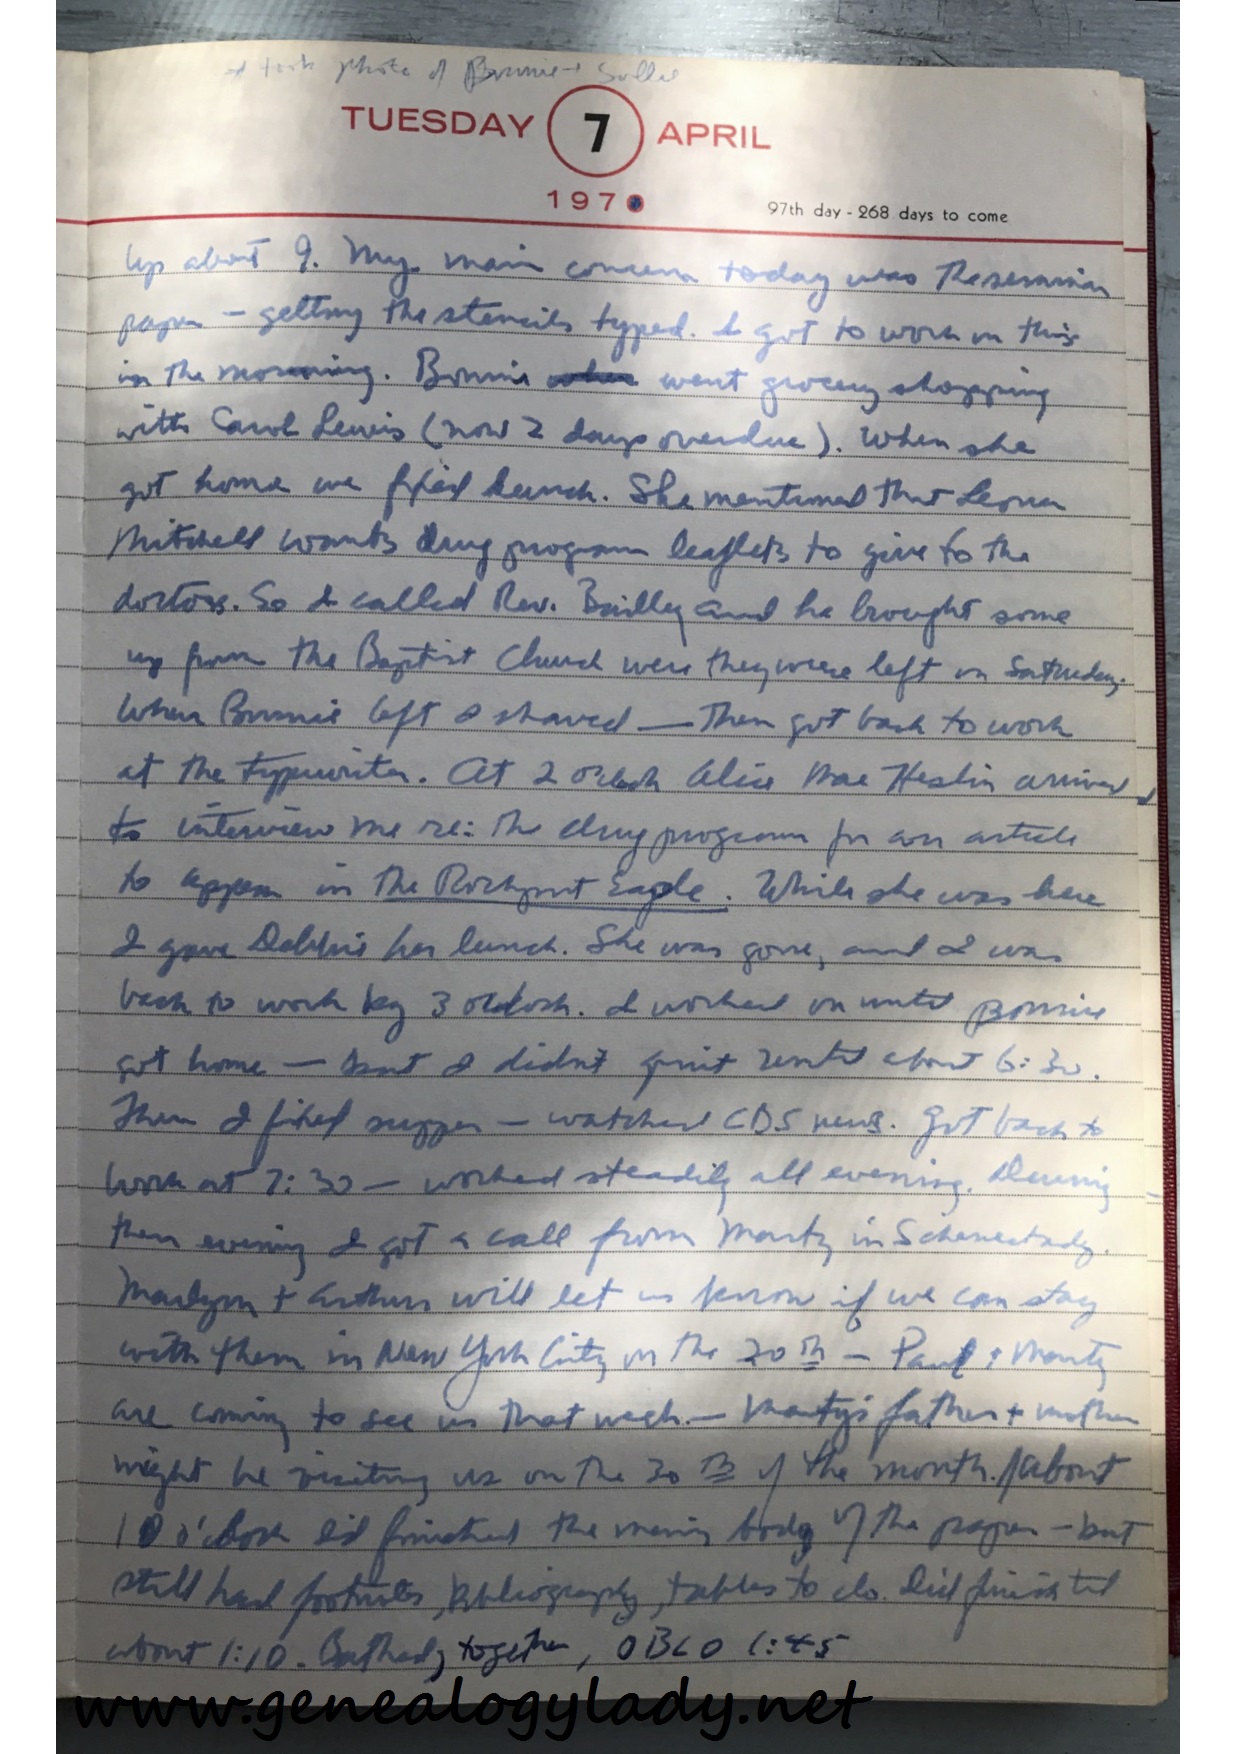 + took photo of Bonnie +
TUESDAY 7 APRIL
1970
97th day - 268 days to come
Up about 9. My main concern today was the seminar
paper — getting the stencils typed. I got to work on this
in the morning. Bonnie went grocery shopping
with Carol Lewis (now 2 days overdue). When she
got home we fixed lunch. She mentioned that Leona
Mitchell wants drug program leaflets to give to the
doctors. So I called Rev. Bailey and he brought some
up from the Baptist Church were they were left on Saturday.
When Bonnie left I shaved — then got back to work
at the typewriter. At 2 o'clock Alice Mae Heslin arrived
to interview me re: the drug program for an article
to appear in the Rockport Eagle. While she was here
I gave Debbie her lunch. She was gone, and I was
back to work by 3 o'clock. I worked on until Bonnie
got home — but I didn't quit until about 6:30.
Then I fixed supper — watched CBS news. Got back to
work at 7:30 — worked steadily all evening. During
then evening I got a call from Marty in Schenectady.
Marlynn + Arthur will let us know if we can stay
with them in New York City on the 20th — Paul & Marty
are coming to see us that week. — Marty's father + mother
might be visiting us on the 30th of the month. / About
10 o'clock I'd finished the main body of the paper — but
still had footnotes, bibliography, tables to do. Did finish til
about 1:10. Bathed, together, OBLO 1:45
www.genealogylady.net